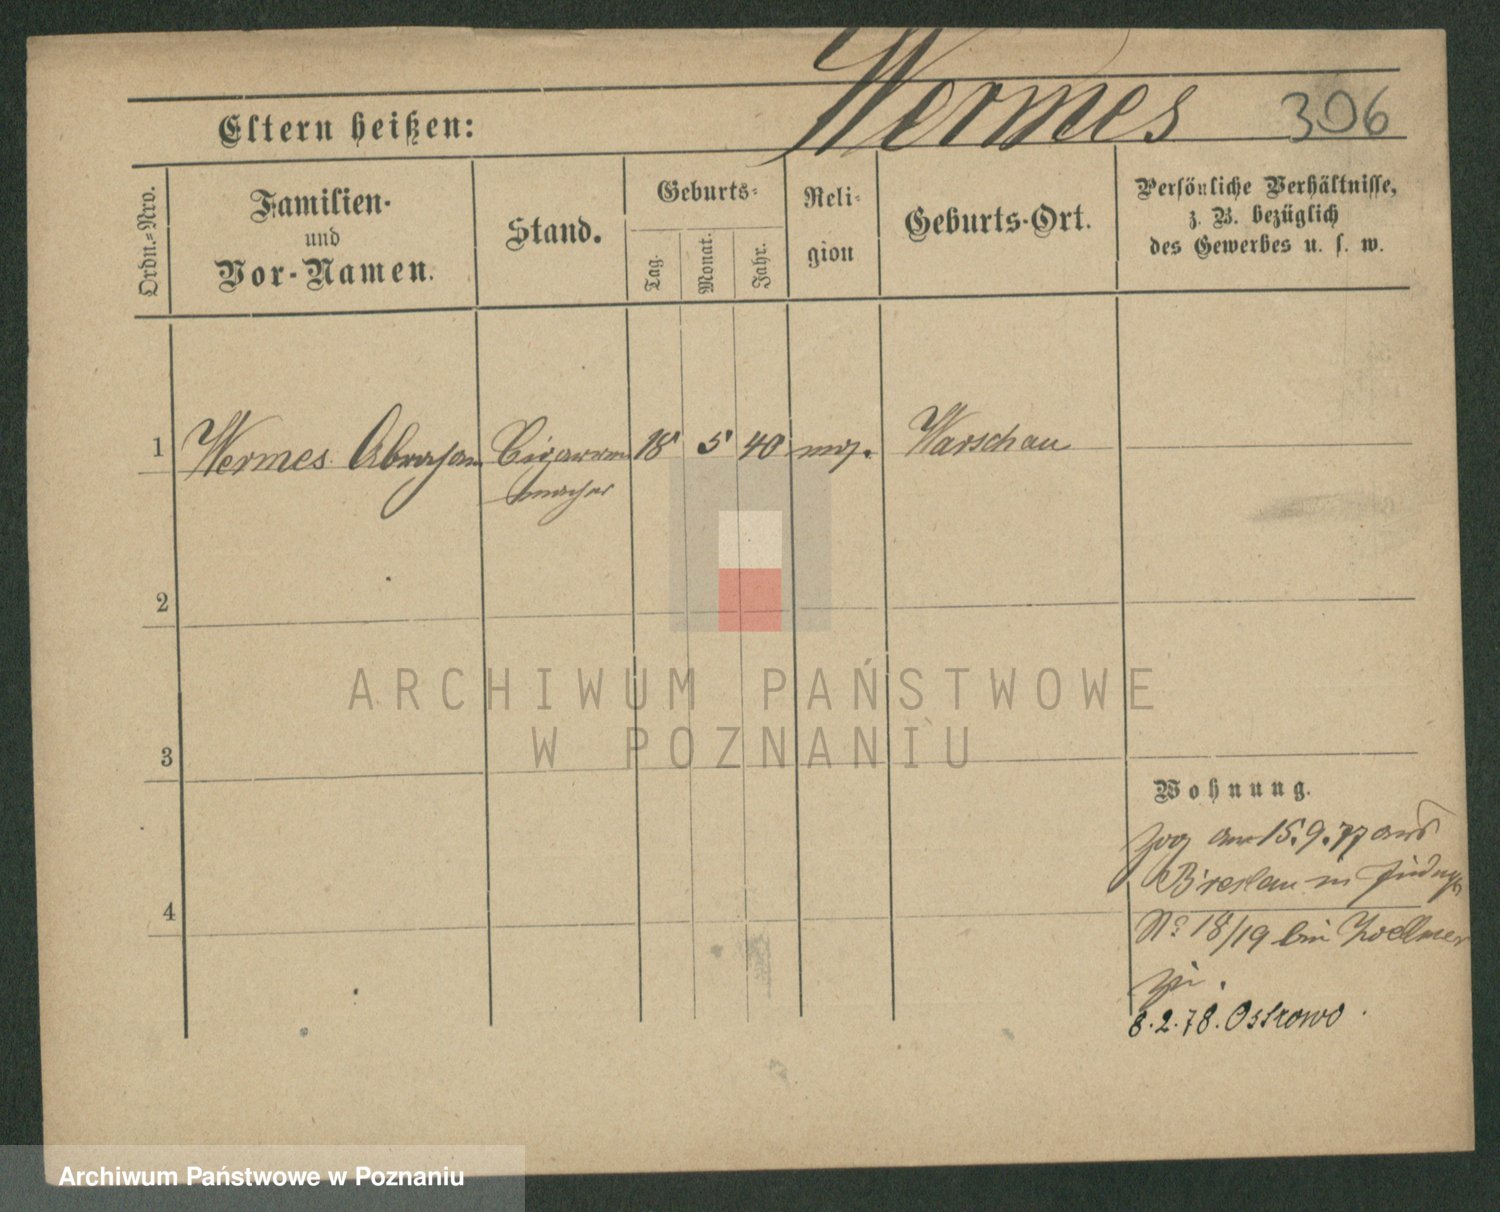 Wermes 306
Eltern heißen:
Ordn.-Nro.
Familien-
und
Vor-Namen.
Stand.
Geburts-
Tag.
Monat.
Jahr.
Reli-
gion
Geburts-Ort.
Persönliche Verhältnisse,
z. B. bezüglich
des Gewerbes u. s. w.
1 Wermes Abraham Cigarren 18 5 40 mos. Warschau
macher
2
3
4
Wohnung.
Zog am 15.9.77 aus
Breslau in
No 18/19 bei Zoellner
zu.
8.2.78. Ostrowo.
ARCHIWUM PAŃSTWOWE
W POZNANIU
Archiwum Państwowe w Poznaniu